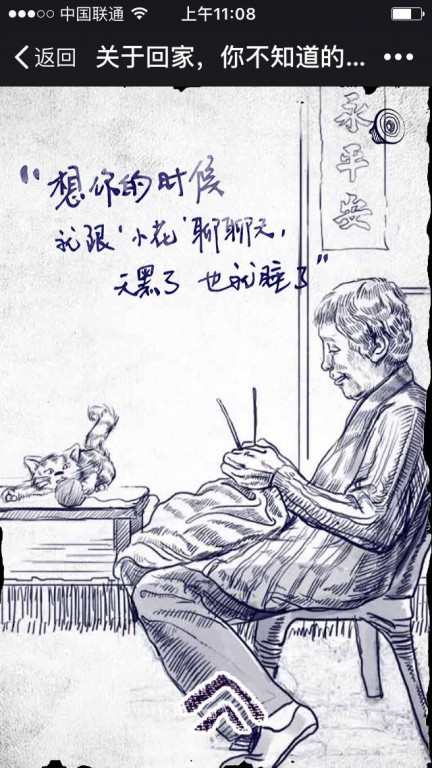 中国联通
上午11:08
返回
关于回家，你不知道的...
永平安
“想你的时候
就跟‘小花’聊聊天，
天黑了 也就睡了”